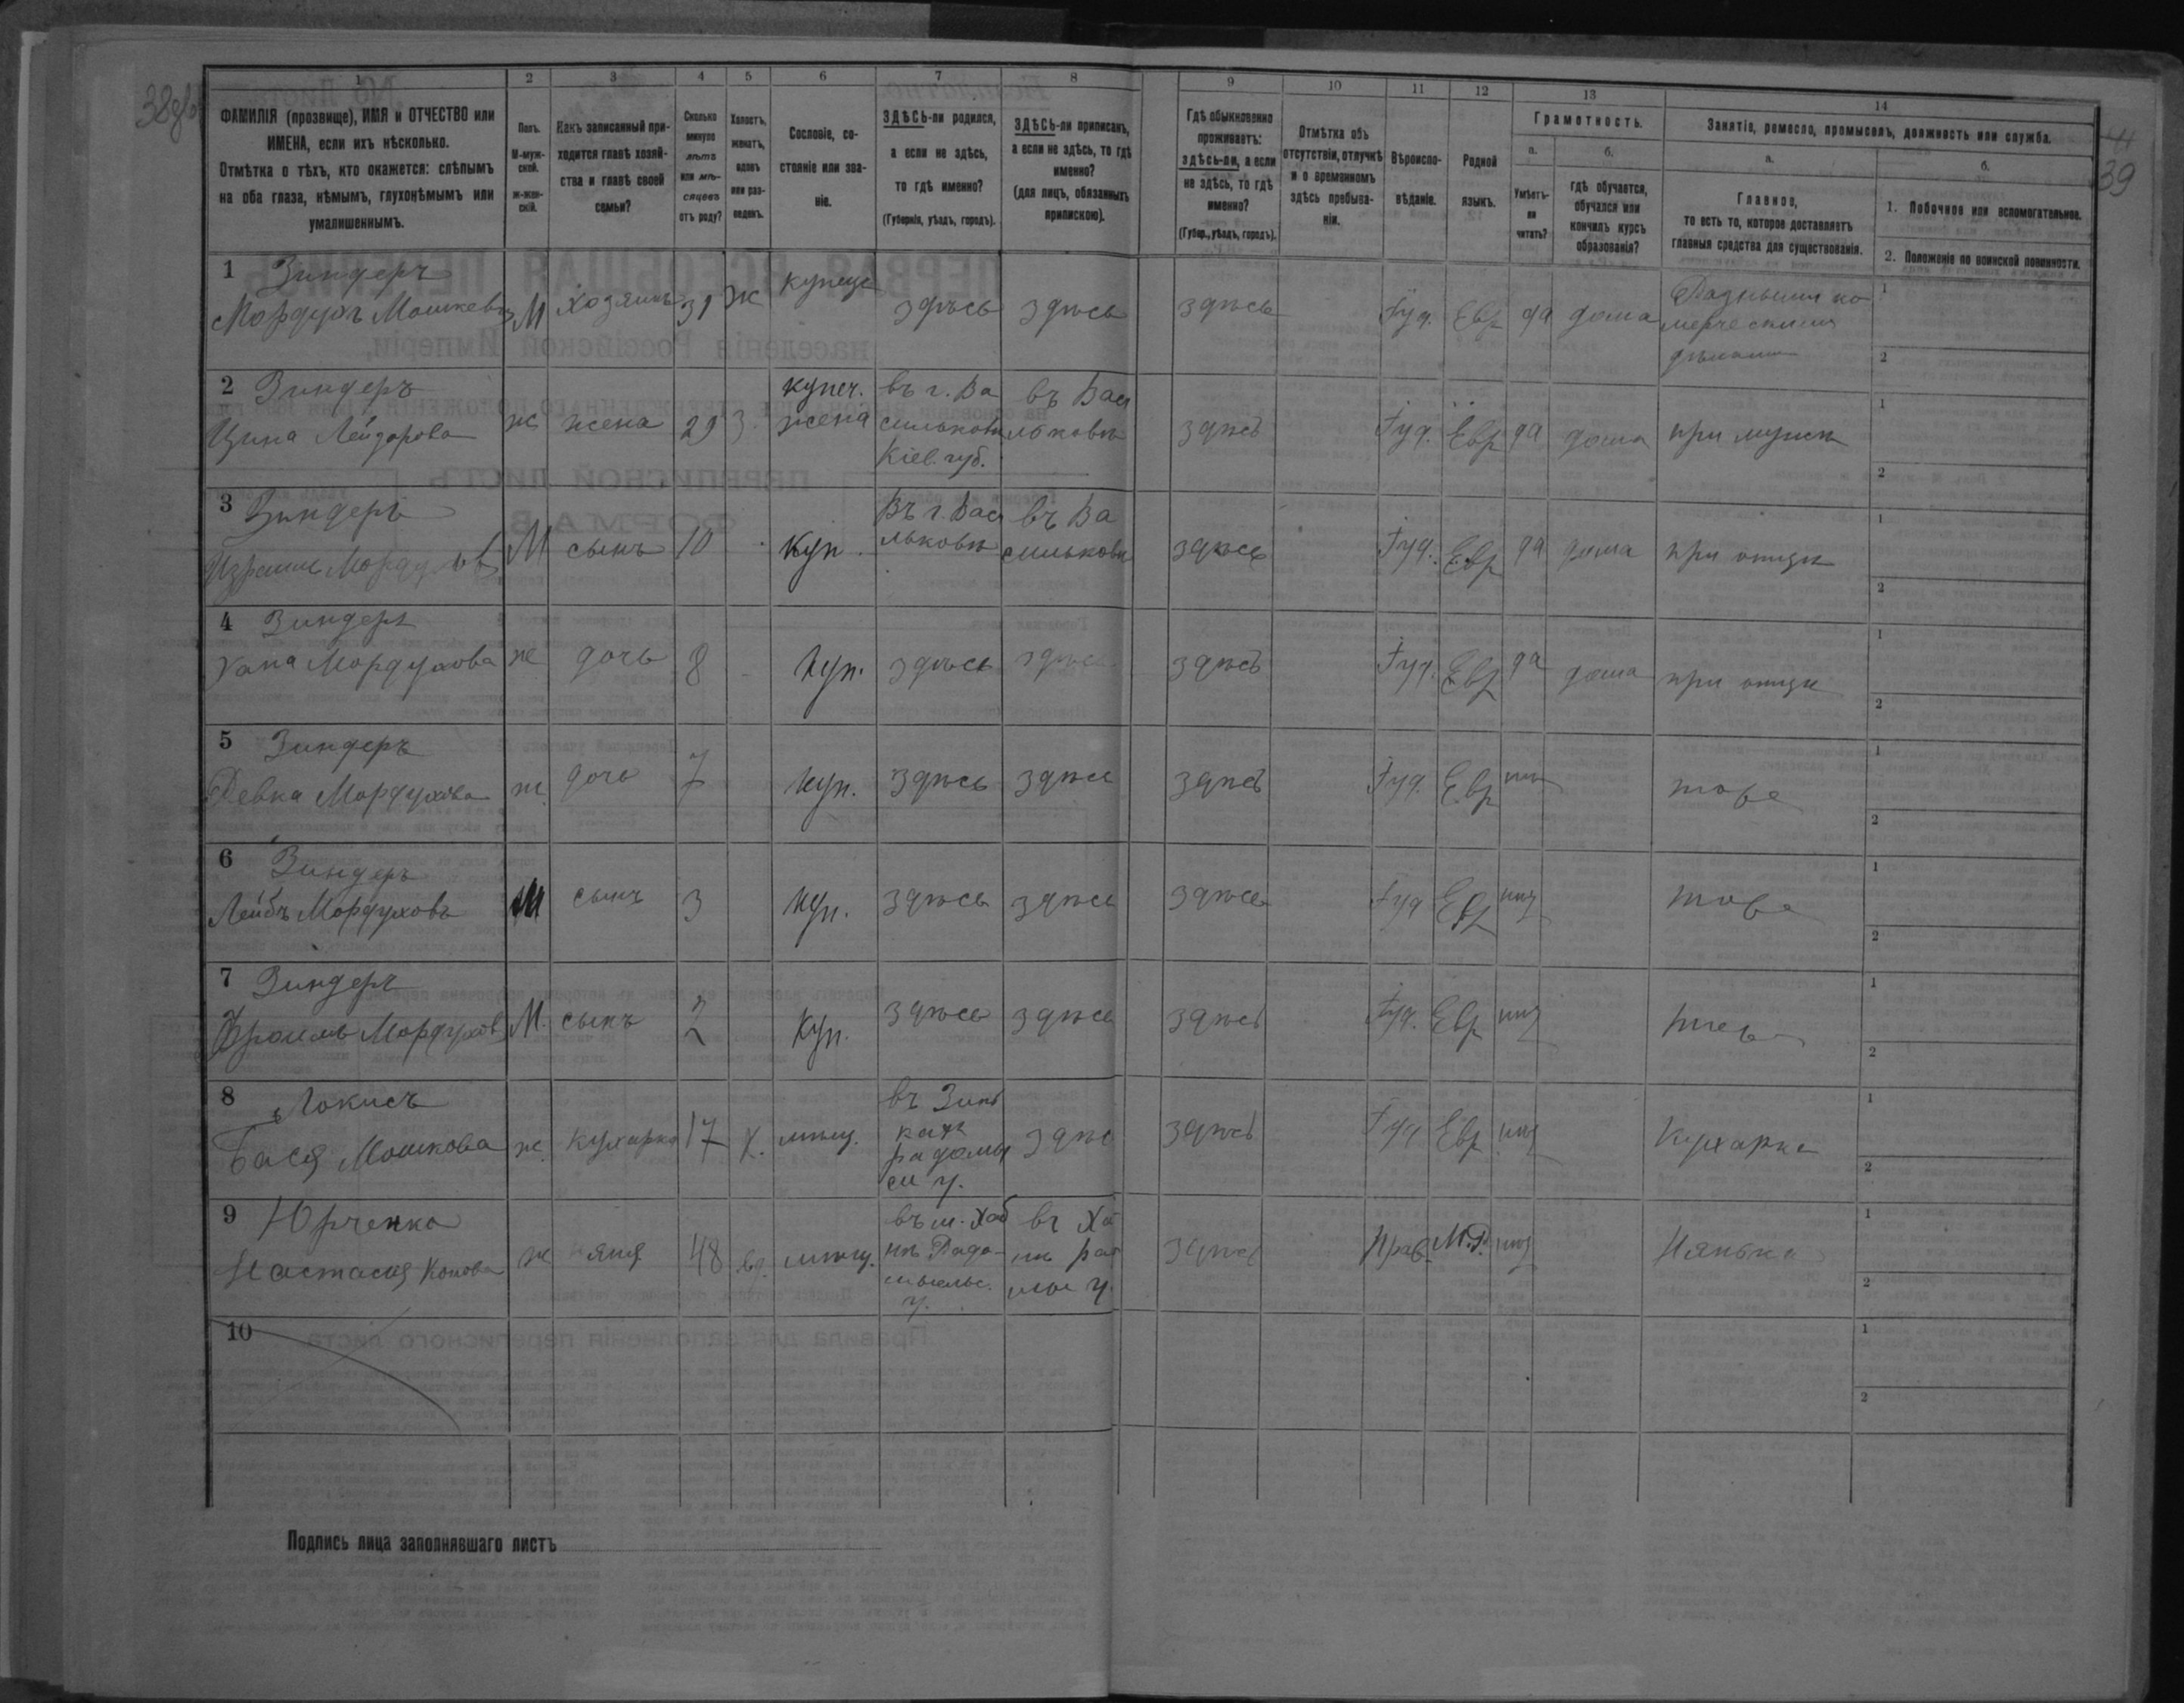 38об
39
1 2 3 4 5 6 7 8 9 10 11 12 13 14
ФАМИЛІЯ (прозвище), ИМЯ и ОТЧЕСТВО или
ИМЕНА, если ихъ нѣсколько.
Отмѣтка о тѣхъ, кто окажется: слѣпымъ
на оба глаза, нѣмымъ, глухонѣмымъ или
умалишеннымъ.
Полъ.
М-муж-
ской.
ж-жен-
скій.
Какъ записанный при-
ходится главѣ хозяй-
ства и главѣ своей
семьи?
Сколько
минуло
лѣтъ
или мѣ-
сяцевъ
отъ роду?
Холостъ,
женатъ,
вдовъ
или раз-
веденъ.
Сословіе, со-
стояніе или зва-
ніе.
ЗДѢСЬ-ли родился,
а если не здѣсь,
то гдѣ именно?
(Губернія, уѣздъ, городъ).
ЗДѢСЬ-ли приписанъ,
а если не здѣсь, то гдѣ
именно?
(для лицъ, обязанныхъ
припискою).
Гдѣ обыкновенно
проживаетъ:
здѣсь-ли, а если
не здѣсь, то гдѣ
именно?
(Губер., уѣздъ, городъ).
Отмѣтка объ
отсутствіи, отлучкѣ
и о временномъ
здѣсь пребыва-
ніи.
Вѣроиспо-
вѣданіе.
Родной
языкъ.
Грамотность.
а.
Умѣетъ-
ли
читать?
б.
гдѣ обучается,
обучался или
кончилъ курсъ
образованія?
Занятіе, ремесло, промыселъ, должность или служба.
а.
Главное,
то есть то, которое доставляетъ
главныя средства для существованія.
б.
1. Побочное или вспомогательное.
2. Положеніе по воинской повинности.
1 Зиндеръ
Мордухъ Мошкевъ М хозяинъ 31 ж купецъ здѣсь здѣсь здѣсь Іуд. Евр да дома
1
2
2 Зиндеръ
Цина Лейзорова ж жена 29 з. купеч.
жена
въ г. Ва
сильковѣ
Кіев. губ.
въ Васи
льковѣ
здѣсь Іуд. Евр да дома при мужѣ
1
2
3 Зиндеръ
Израиль Мордуховъ М сынъ 10 Куп.
Въ г. Васи
льковѣ
въ Ва
сильковѣ
здѣсь Іуд. Евр да дома при отцѣ
1
2
4 Зиндеръ
Хана Мордухова ж дочь 8 Куп. здѣсь здѣсь здѣсь Іуд. Евр да дома при отцѣ
1
2
5 Зиндеръ
Ревка Мордухова ж. дочь 7 Куп. здѣсь здѣсь здѣсь Іуд. Евр нѣт тоже
1
2
6 Зиндеръ
Лейбъ Мордуховъ М сынъ 3 Куп. здѣсь здѣсь здѣсь Іуд Евр нѣт тоже
1
2
7 Зиндеръ
Мордухов М. сынъ 2 Куп. здѣсь здѣсь здѣсь Іуд. Евр нѣт
1
2
8
Бася Мошкова ж. кухарка 17 х. мѣщ. здѣс здѣсь Іуд Евр. нѣт Кухарка
1
2
9 Юрченко
Настасья ж няня 48 вд. мѣщ.
въ м. Хаб
нѣ Радо-
мысльс.
у.
здѣсь Прав. М.Р. нѣт Нянька
1
2
10
1
2
Подпись лица заполнявшаго листъ